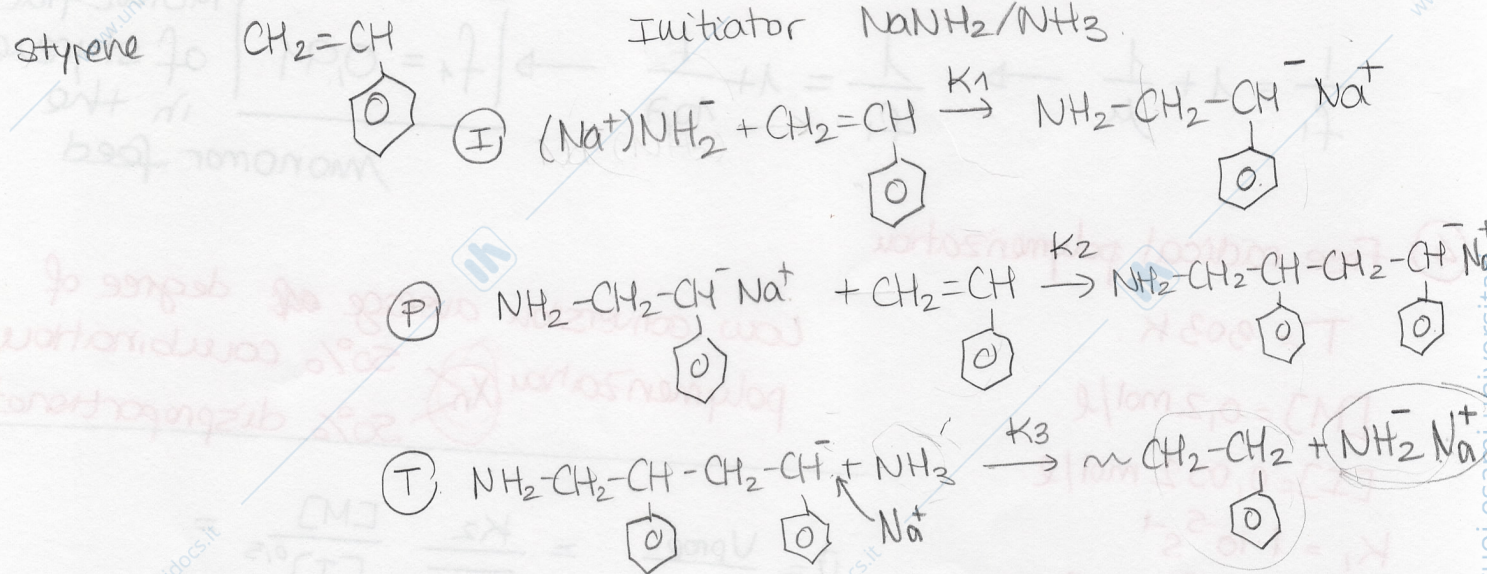 styrene CH₂=CH Initiator NaNH₂/NH₃.
I (Na⁺)NH₂⁻ + CH₂=CH K1→ NH₂-CH₂-CH⁻ Na⁺
P NH₂-CH₂-CH⁻ Na⁺ + CH₂=CH K2→ NH₂-CH₂-CH-CH₂-CH⁻ Na⁺
T NH₂-CH₂-CH-CH₂-CH⁻ + NH₃ K3→ ~CH₂-CH₂ + NH₂⁻ Na⁺
Na⁺